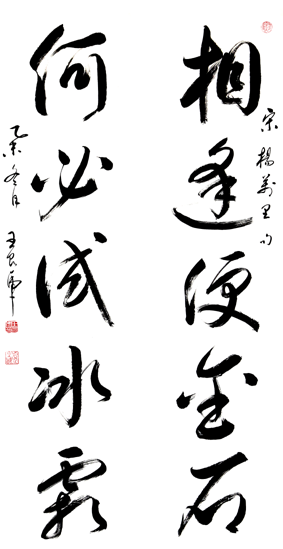 宋楊萬里句
相逢便金石
何必试冰霜
乙未冬月 王